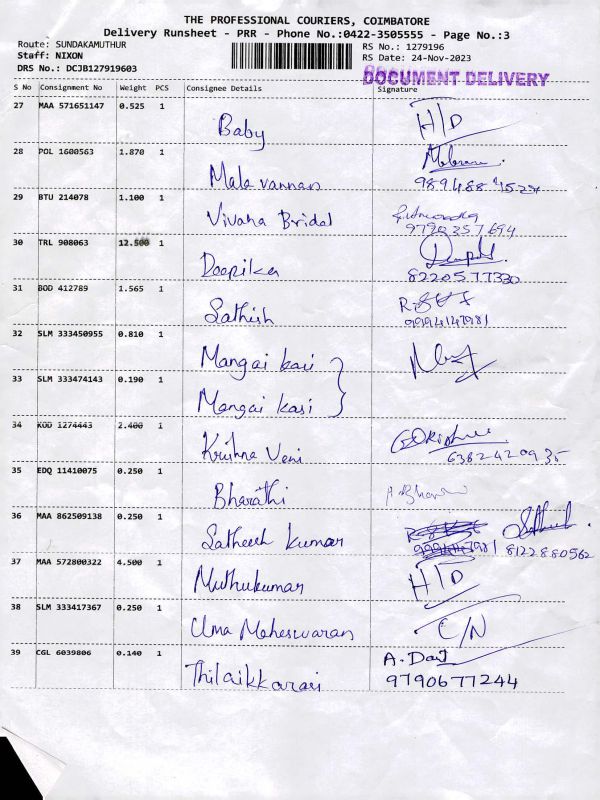 THE PROFESSIONAL COURIERS, COIMBATORE
Delivery Runsheet - PRR - Phone No.:0422-3505555 - Page No.:3
Route: SUNDAKAMUTHUR
RS No.: 1279196
Staff: NIXON
RS Date: 24-Nov-2023
DRS No.: DCJB127919603
DOCUMENT DELIVERY
S No Consignment No Weight PCS Consignee Details Signature
27 MAA 571651147 0.525 1
Baby H/D
28 POL 1600563 1.870 1
Mala vannan
29 BTU 214078 1.100 1
Vivaha Bridal
9790357694
30 TRL 908063 12.500 1
Deepika
8220577330
31 BOD 412789 1.565 1
Sathish
9994147981
32 SLM 333450955 0.810 1
Mangai kasi
33 SLM 333474143 0.190 1
Mangai kasi
34 KOD 1274443 2.400 1
Krishna Veni
6382420935
35 EDQ 11410075 0.250 1
Bharathi
36 MAA 862509138 0.250 1
Satheesh kumar
8122880562
37 MAA 572800322 4.500 1
Muthukumar H/D
38 SLM 333417367 0.250 1
Uma Maheswaran C/N
39 CGL 6039806 0.140 1
Thilaikkarasi
9790677244